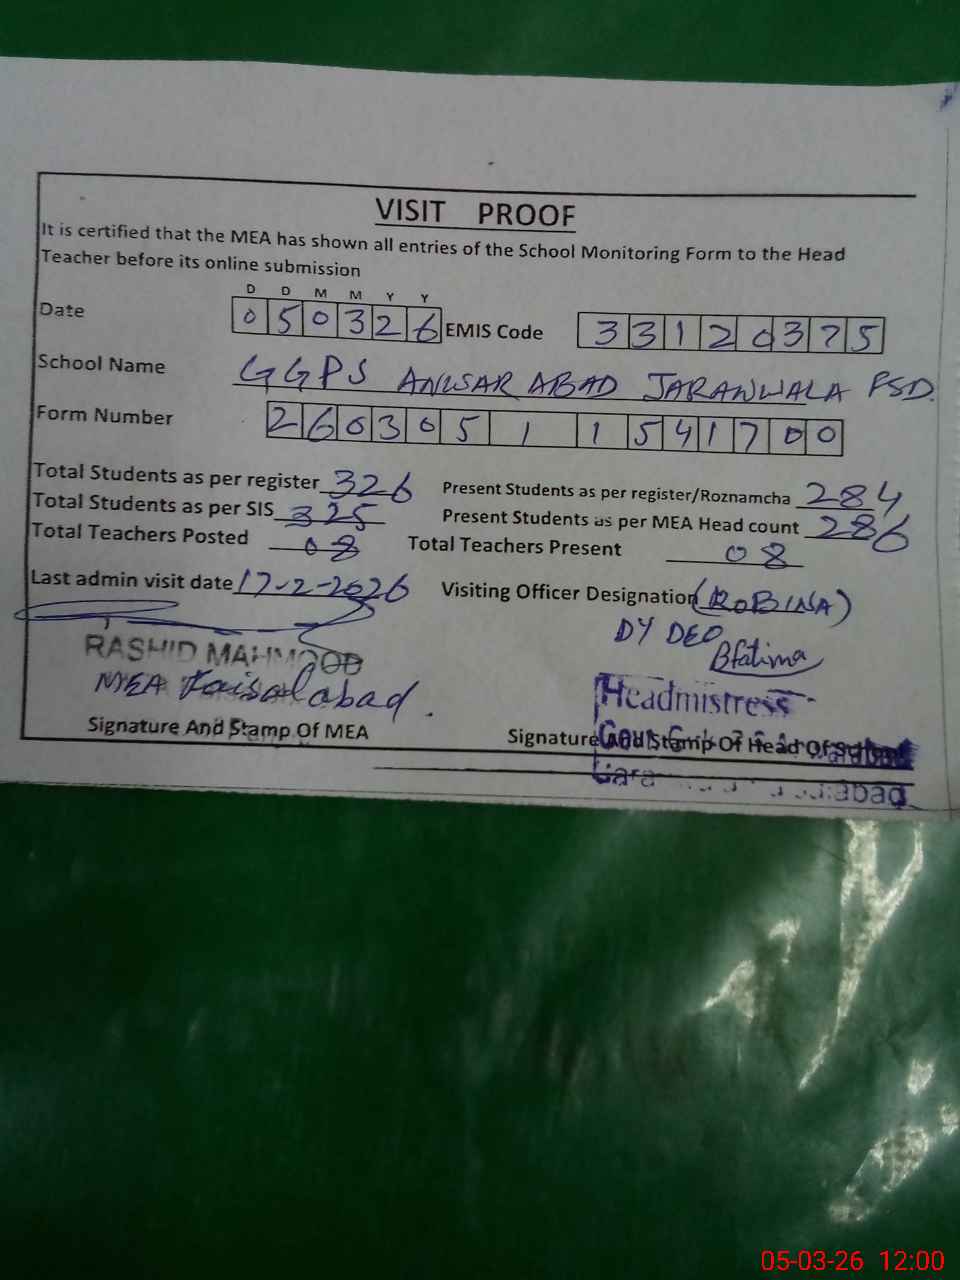 VISIT PROOF
It is certified that the MEA has shown all entries of the School Monitoring Form to the Head
Teacher before its online submission
D D M M Y Y
Date 0 5 0 3 2 6 EMIS Code 3 3 1 2 0 3 7 5
School Name GGPS ANWSAR ABAD JARANWALA FSD.
Form Number 2 6 0 3 0 5 1 1 5 4 1 7 0 0
Total Students as per register 326 Present Students as per register/Roznamcha 284
Total Students as per SIS 325 Present Students as per MEA Head count 286
Total Teachers Posted 08 Total Teachers Present 08
Last admin visit date 17-2-2026 Visiting Officer Designation (ROBINA)
DY DEO
Bfatima
RASHID MAHMOOD
MEA Faisalabad.
Headmistress
Signature And Stamp Of MEA Signature And Stamp Of Head Of School
05-03-26 12:00